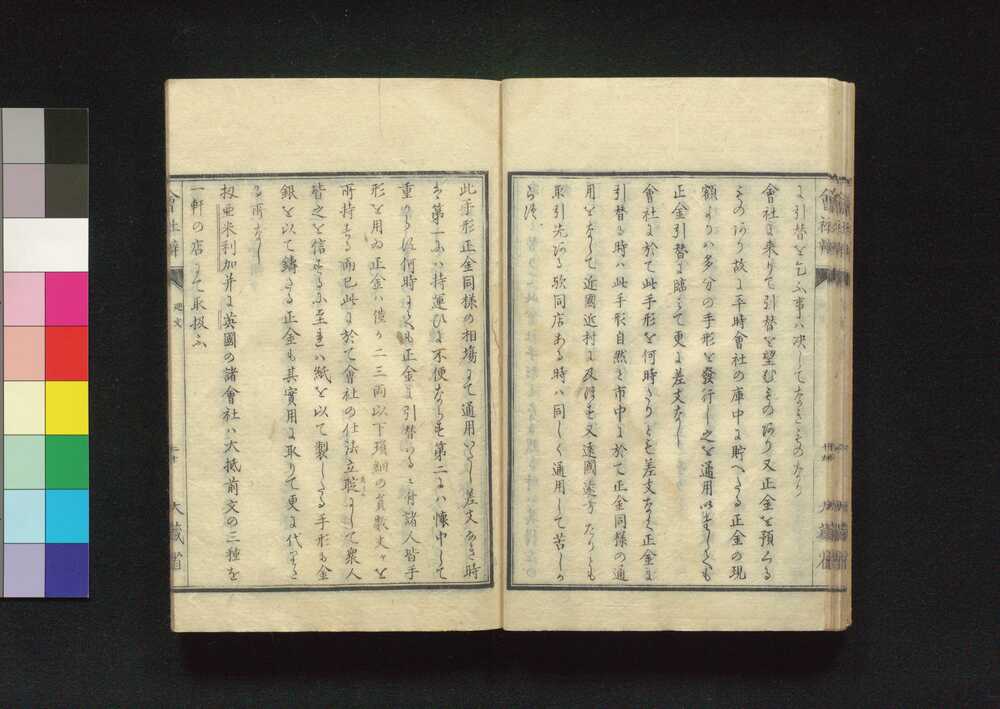 に引替を乞ふ事ハ决してなきものなり
會社に来りて引替を望むものあり又正金を預くる
ものあり故に平時會社の庫中に貯へたる正金の現
額よりハ多分の手形を發行し之を通用いたしても
正金引替に臨ミて更に差支なし
會社に於て此手形を何時たりとも差支なく正金に
引替る時ハ此手形自然と市中に於て正金同様の通
用をなして近國近村に及ほし又遠國遠方なりとも
取引先ある歟同店ある時ハ同しく通用して苦しか
らす
此手形正金同様の相場にて通用いたし差支なき時
は第一にハ持運ひに不便ならす第二にハ懐中して
重からす何時にても正金に引替らるゝ付諸人皆手
形を用ゐ正金ハ僅カ二三両以下瑣細の員数丈ケを
所持する而已此に於て會社の仕法立聢として衆人
皆之を信するに至れハ紙を以て製したる手形も金
銀を以て鑄たる正金も其實用に取りて更に代りた
る所なし
扨亜米利加并に英國の諸會社ハ大抵前文の三種を
一軒の店にて取扱ふ
會社辨
大藏省